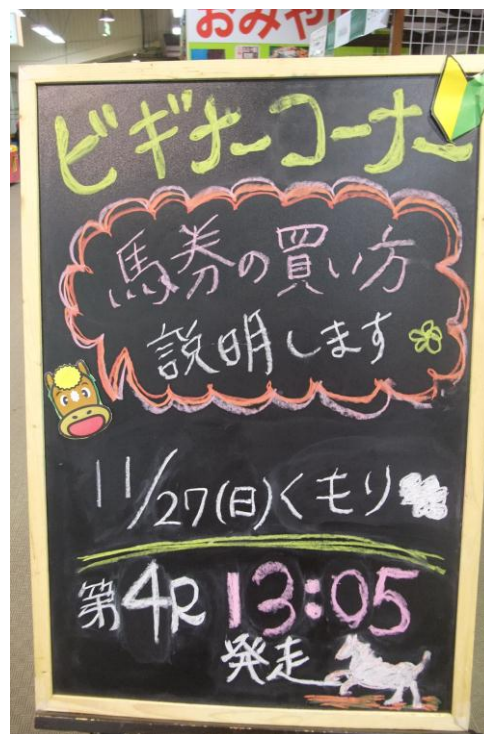 ビギナーコーナー
馬券の買い方
説明します
11/27(日)くもり
第4R 13:05
発走